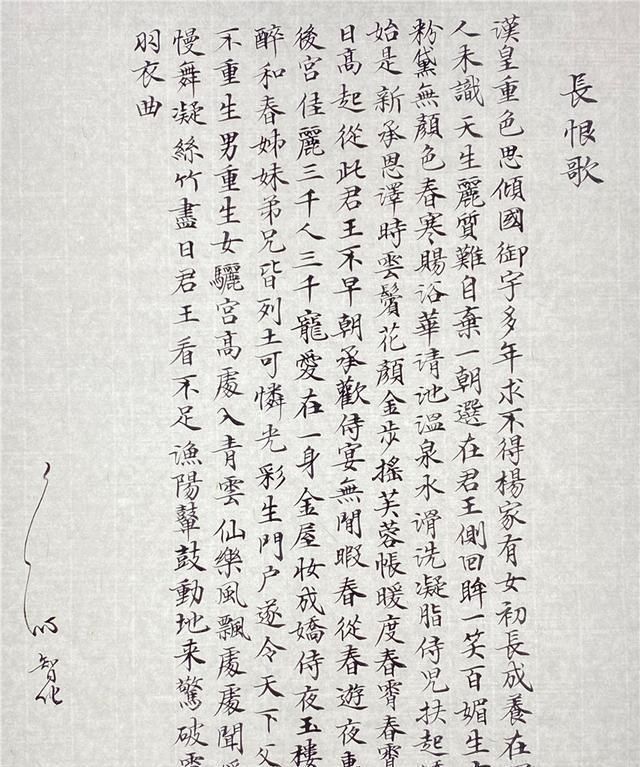 長恨歌
漢皇重色思傾國御宇多年求不得楊家有女初長成養在
人未識天生麗質難自棄一朝選在君王側回眸一笑百媚生
粉黛無顏色春寒賜浴華清池溫泉水滑洗凝脂侍児扶起
始是新承恩澤時雲鬢花顏金步搖芙蓉帳暖度春宵春宵
日高起從此君王不早朝承歡侍宴無閒暇春從春遊夜
後宮佳麗三千人三千寵愛在一身金屋妝成嬌侍夜玉樓
醉和春姊妹弟兄皆列土可憐光彩生門户遂令天下父
不重生男重生女驪宮高處入青雲仙樂風飄處處聞
慢舞凝絲竹盡日君王看不足漁陽鼙鼓動地来驚破
羽衣曲
智化